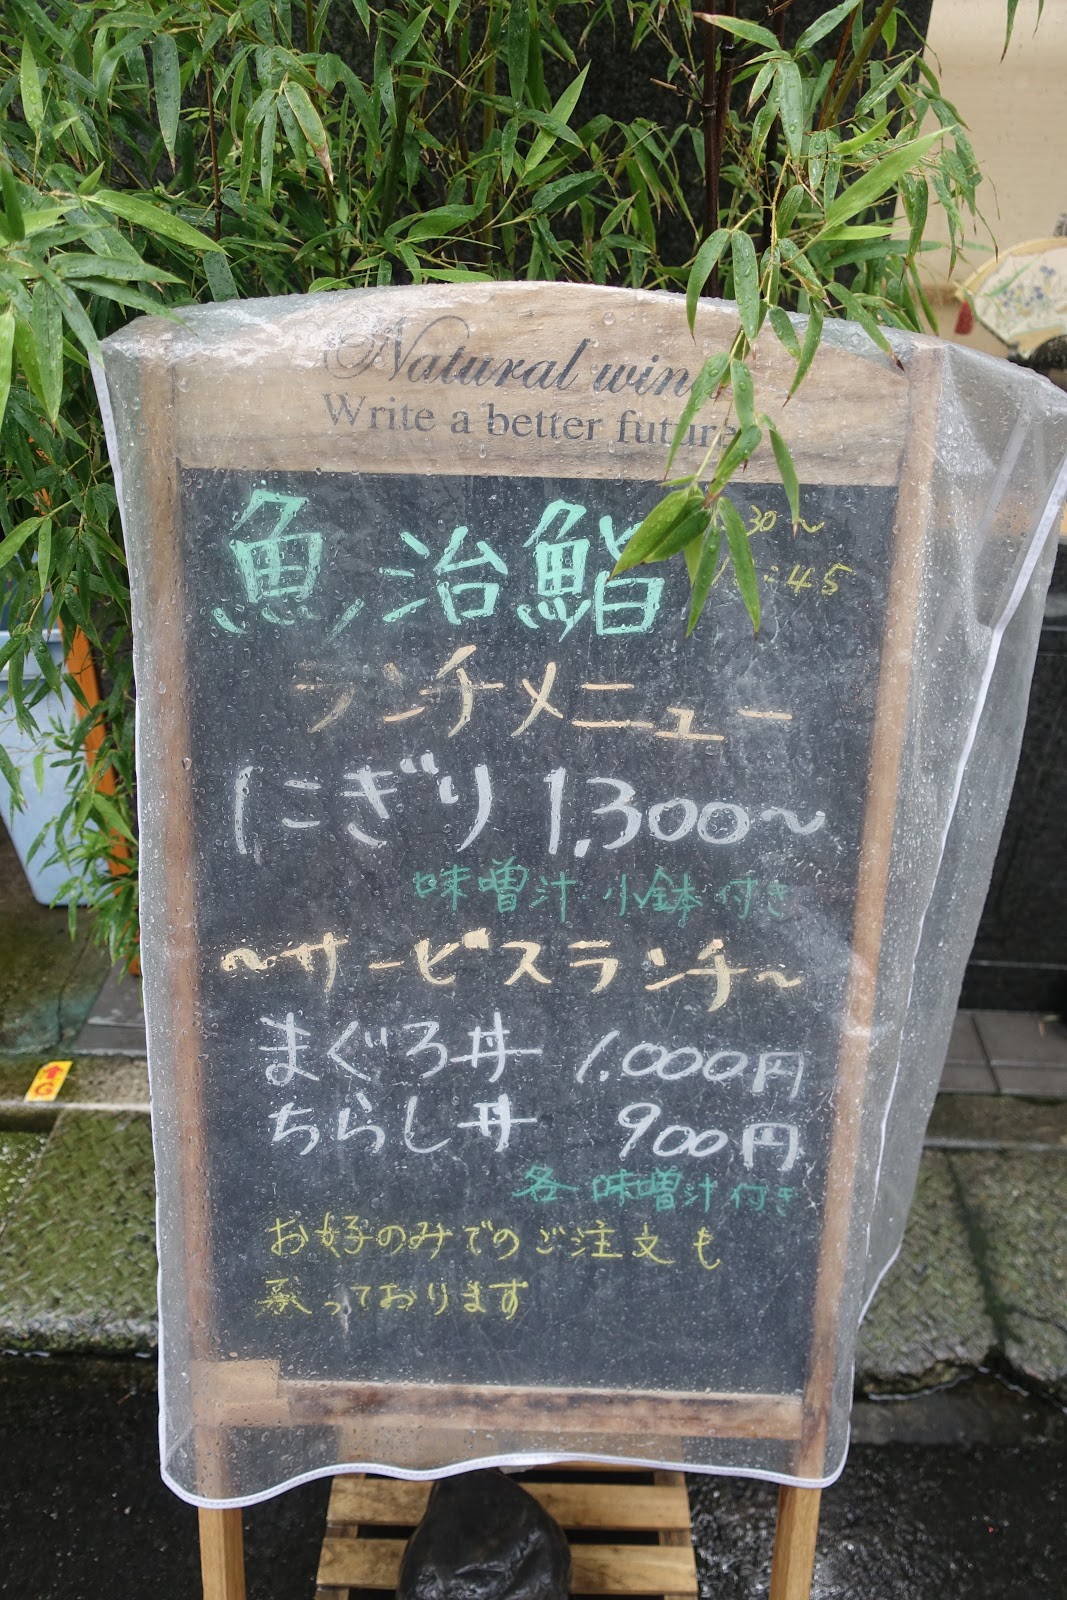 Natural wind
Write a better future
魚治鮨
30〜
:45
ランチメニュー
にぎり 1.300〜
味噌汁.小鉢付き
〜サービスランチ〜
まぐろ丼 1.000円
ちらし丼 900円
各味噌汁付き
お好のみでのご注文も
承っております